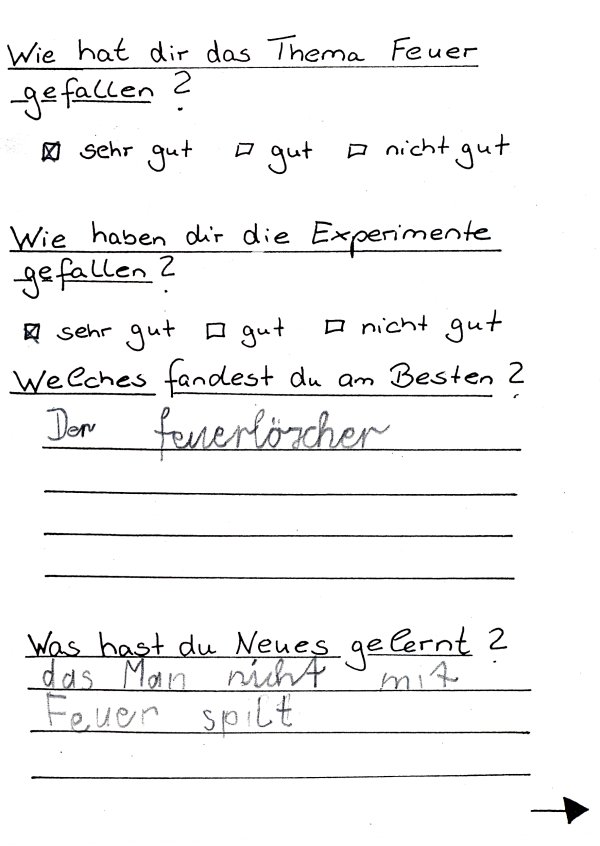 Wie hat dir das Thema Feuer
gefallen?
☒ sehr gut ☐ gut ☐ nicht gut
Wie haben dir die Experimente
gefallen?
☒ sehr gut ☐ gut ☐ nicht gut
Welches fandest du am Besten?
Der feuerlöscher
Was hast du Neues gelernt?
das Man nicht mit
Feuer spilt